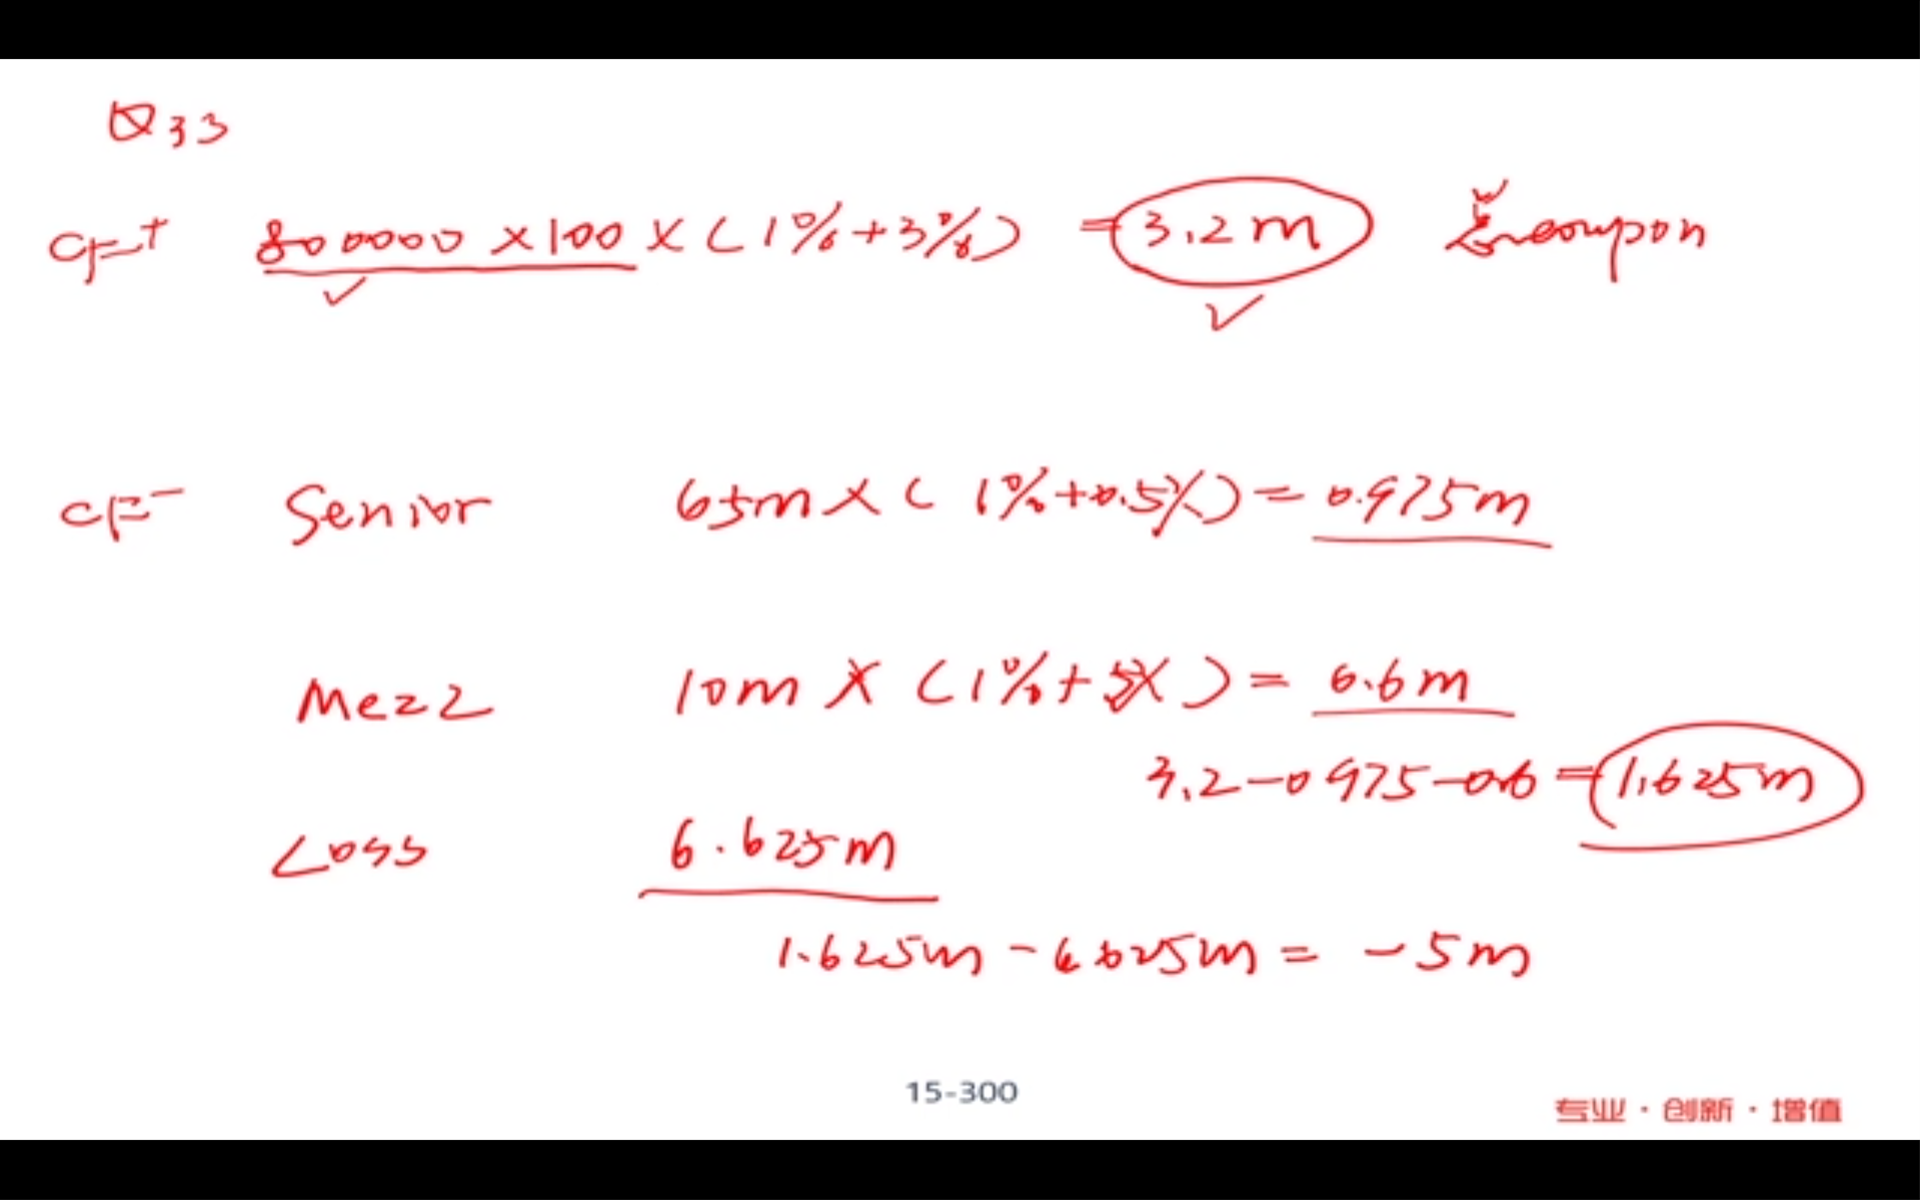 Q33
CF+ 800000 × 100 × (1%+3%) = 3.2m 总coupon
CF- Senior 65m × (1%+0.5%) = 0.975m
Mezz 10m × (1%+5%) = 0.6m
3.2-0.975-0.6 = 1.625m
Loss 6.625m
1.625m - 6.625m = -5m
15-300
专业·创新·增值